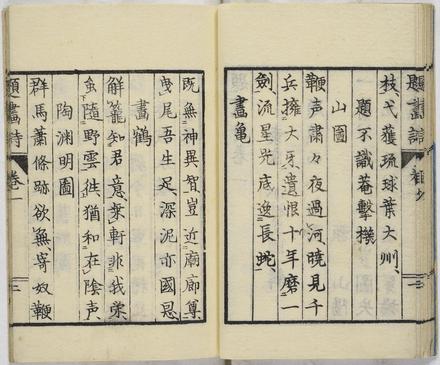 題畫詩
枝、弋獲琉球葉大州、
題不識菴擊機
山圖
鞭声粛々夜過河曉見千
兵擁大牙遺恨十年磨一
劍流星光底逸長蛇
畫亀
既無神異智豈近廟廊尊
曳尾吾生足深泥亦國恩
畫鶴
解籠知君意乗軒非我栄
虽隨野雲徃猶和在陰声
陶淵明圖
群馬蕭條跡欲無寄奴鞭
題畫詩 卷一